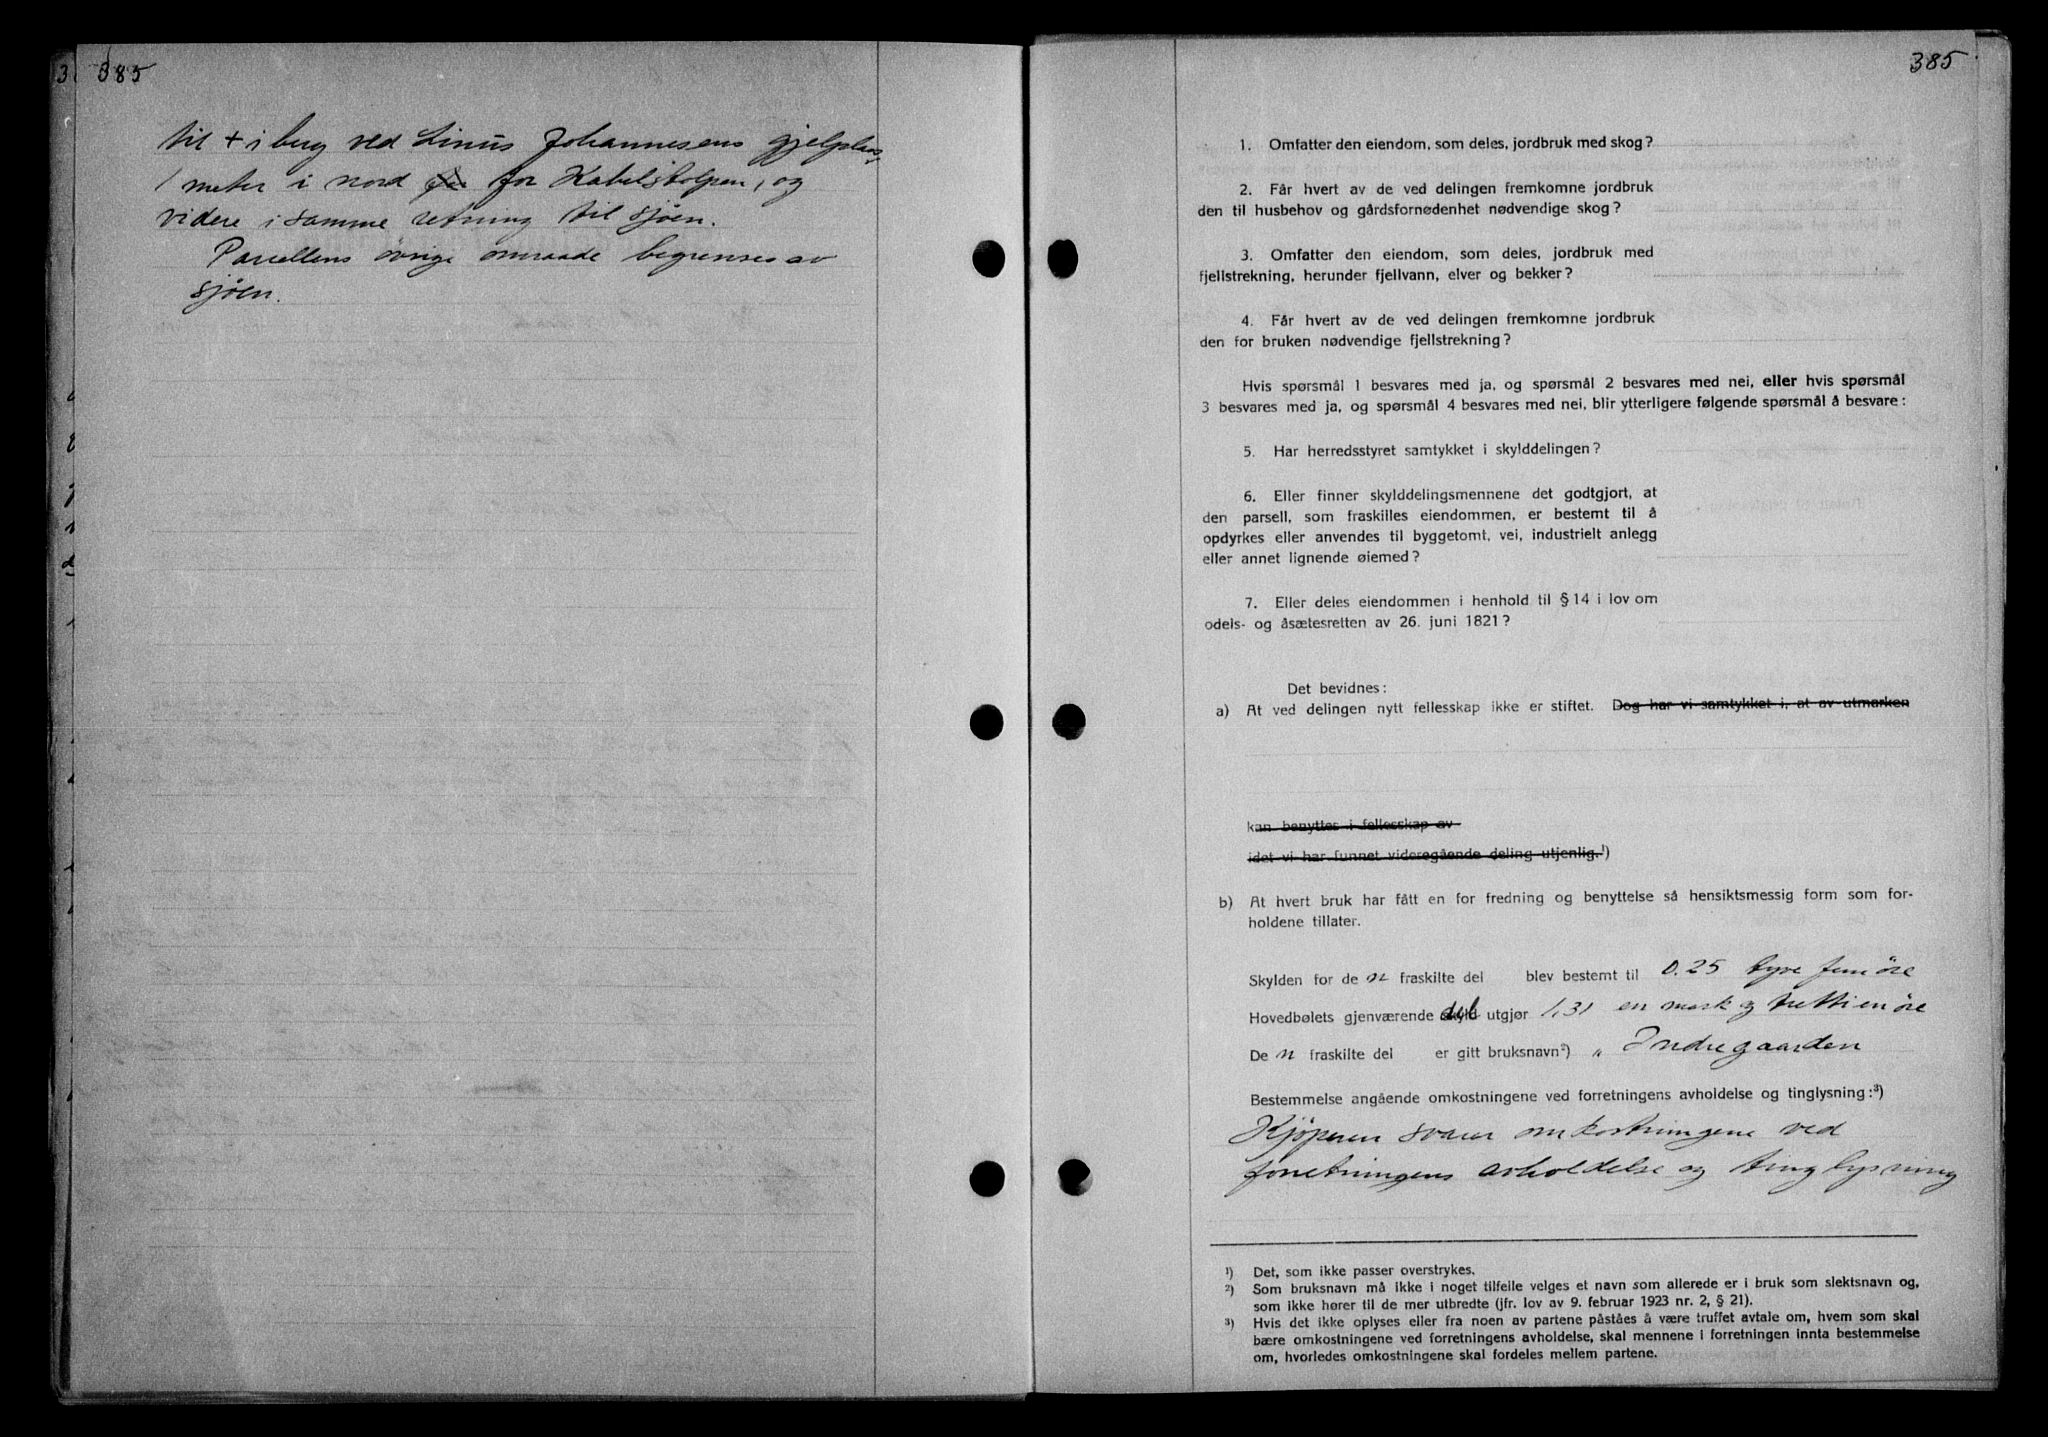 385
til + i berg ved Linus Johannesens gjelplass,
1 meter i nord for Kabelstolpen, og
videre i samme retning til sjøen.
Parcellens øvrige omraade begrenses av
sjøen.
385
1. Omfatter den eiendom, som deles, jordbruk med skog?
2. Får hvert av de ved delingen fremkomne jordbruk
den til husbehov og gårdsfornødenhet nødvendige skog?
3. Omfatter den eiendom, som deles, jordbruk med
fjellstrekning, herunder fjellvann, elver og bekker?
4. Får hvert av de ved delingen fremkomne jordbruk
den for bruken nødvendige fjellstrekning?
Hvis spørsmål 1 besvares med ja, og spørsmål 2 besvares med nei, eller hvis spørsmål
3 besvares med ja, og spørsmål 4 besvares med nei, blir ytterligere følgende spørsmål å besvare:
5. Har herredsstyret samtykket i skylddelingen?
6. Eller finner skylddelingsmennene det godtgjort, at
den parsell, som fraskilles eiendommen, er bestemt til å
opdyrkes eller anvendes til byggetomt, vei, industrielt anlegg
eller annet lignende øiemed?
7. Eller deles eiendommen i henhold til § 14 i lov om
odels- og åsætesretten av 26. juni 1821?
Det bevidnes:
a) At ved delingen nytt fellesskap ikke er stiftet. Dog har vi samtykket i, at av utmarken
kan benyttes i fellesskap av
idet vi har funnet videregående deling utjenlig.¹)
b) At hvert bruk har fått en for fredning og benyttelse så hensiktsmessig form som for-
holdene tillater.
Skylden for de n fraskilte del blev bestemt til 0.25 tyve fem øre
Hovedbølets gjenværende del utgjør 1,31 en mark og tretti en øre
De n fraskilte del er gitt bruksnavn²) „ Indregaarden
Bestemmelse angående omkostningene ved forretningens avholdelse og tinglysning:³)
Kjøperen svarer omkostningene ved
forretningens avholdelse og tinglysning
¹) Det, som ikke passer overstrykes.
²) Som bruksnavn må ikke i noget tilfelle velges et navn som allerede er i bruk som slektsnavn og,
som ikke hører til de mer utbredte (jfr. lov av 9. februar 1923 nr. 2, § 21).
³) Hvis det ikke oplyses eller fra noen av partene påståes å være truffet avtale om, hvem som skal
bære omkostningene ved forretningens avholdelse, skal mennene i forretningen innta bestemmelse
om, hvorledes omkostningene skal fordeles mellem partene.